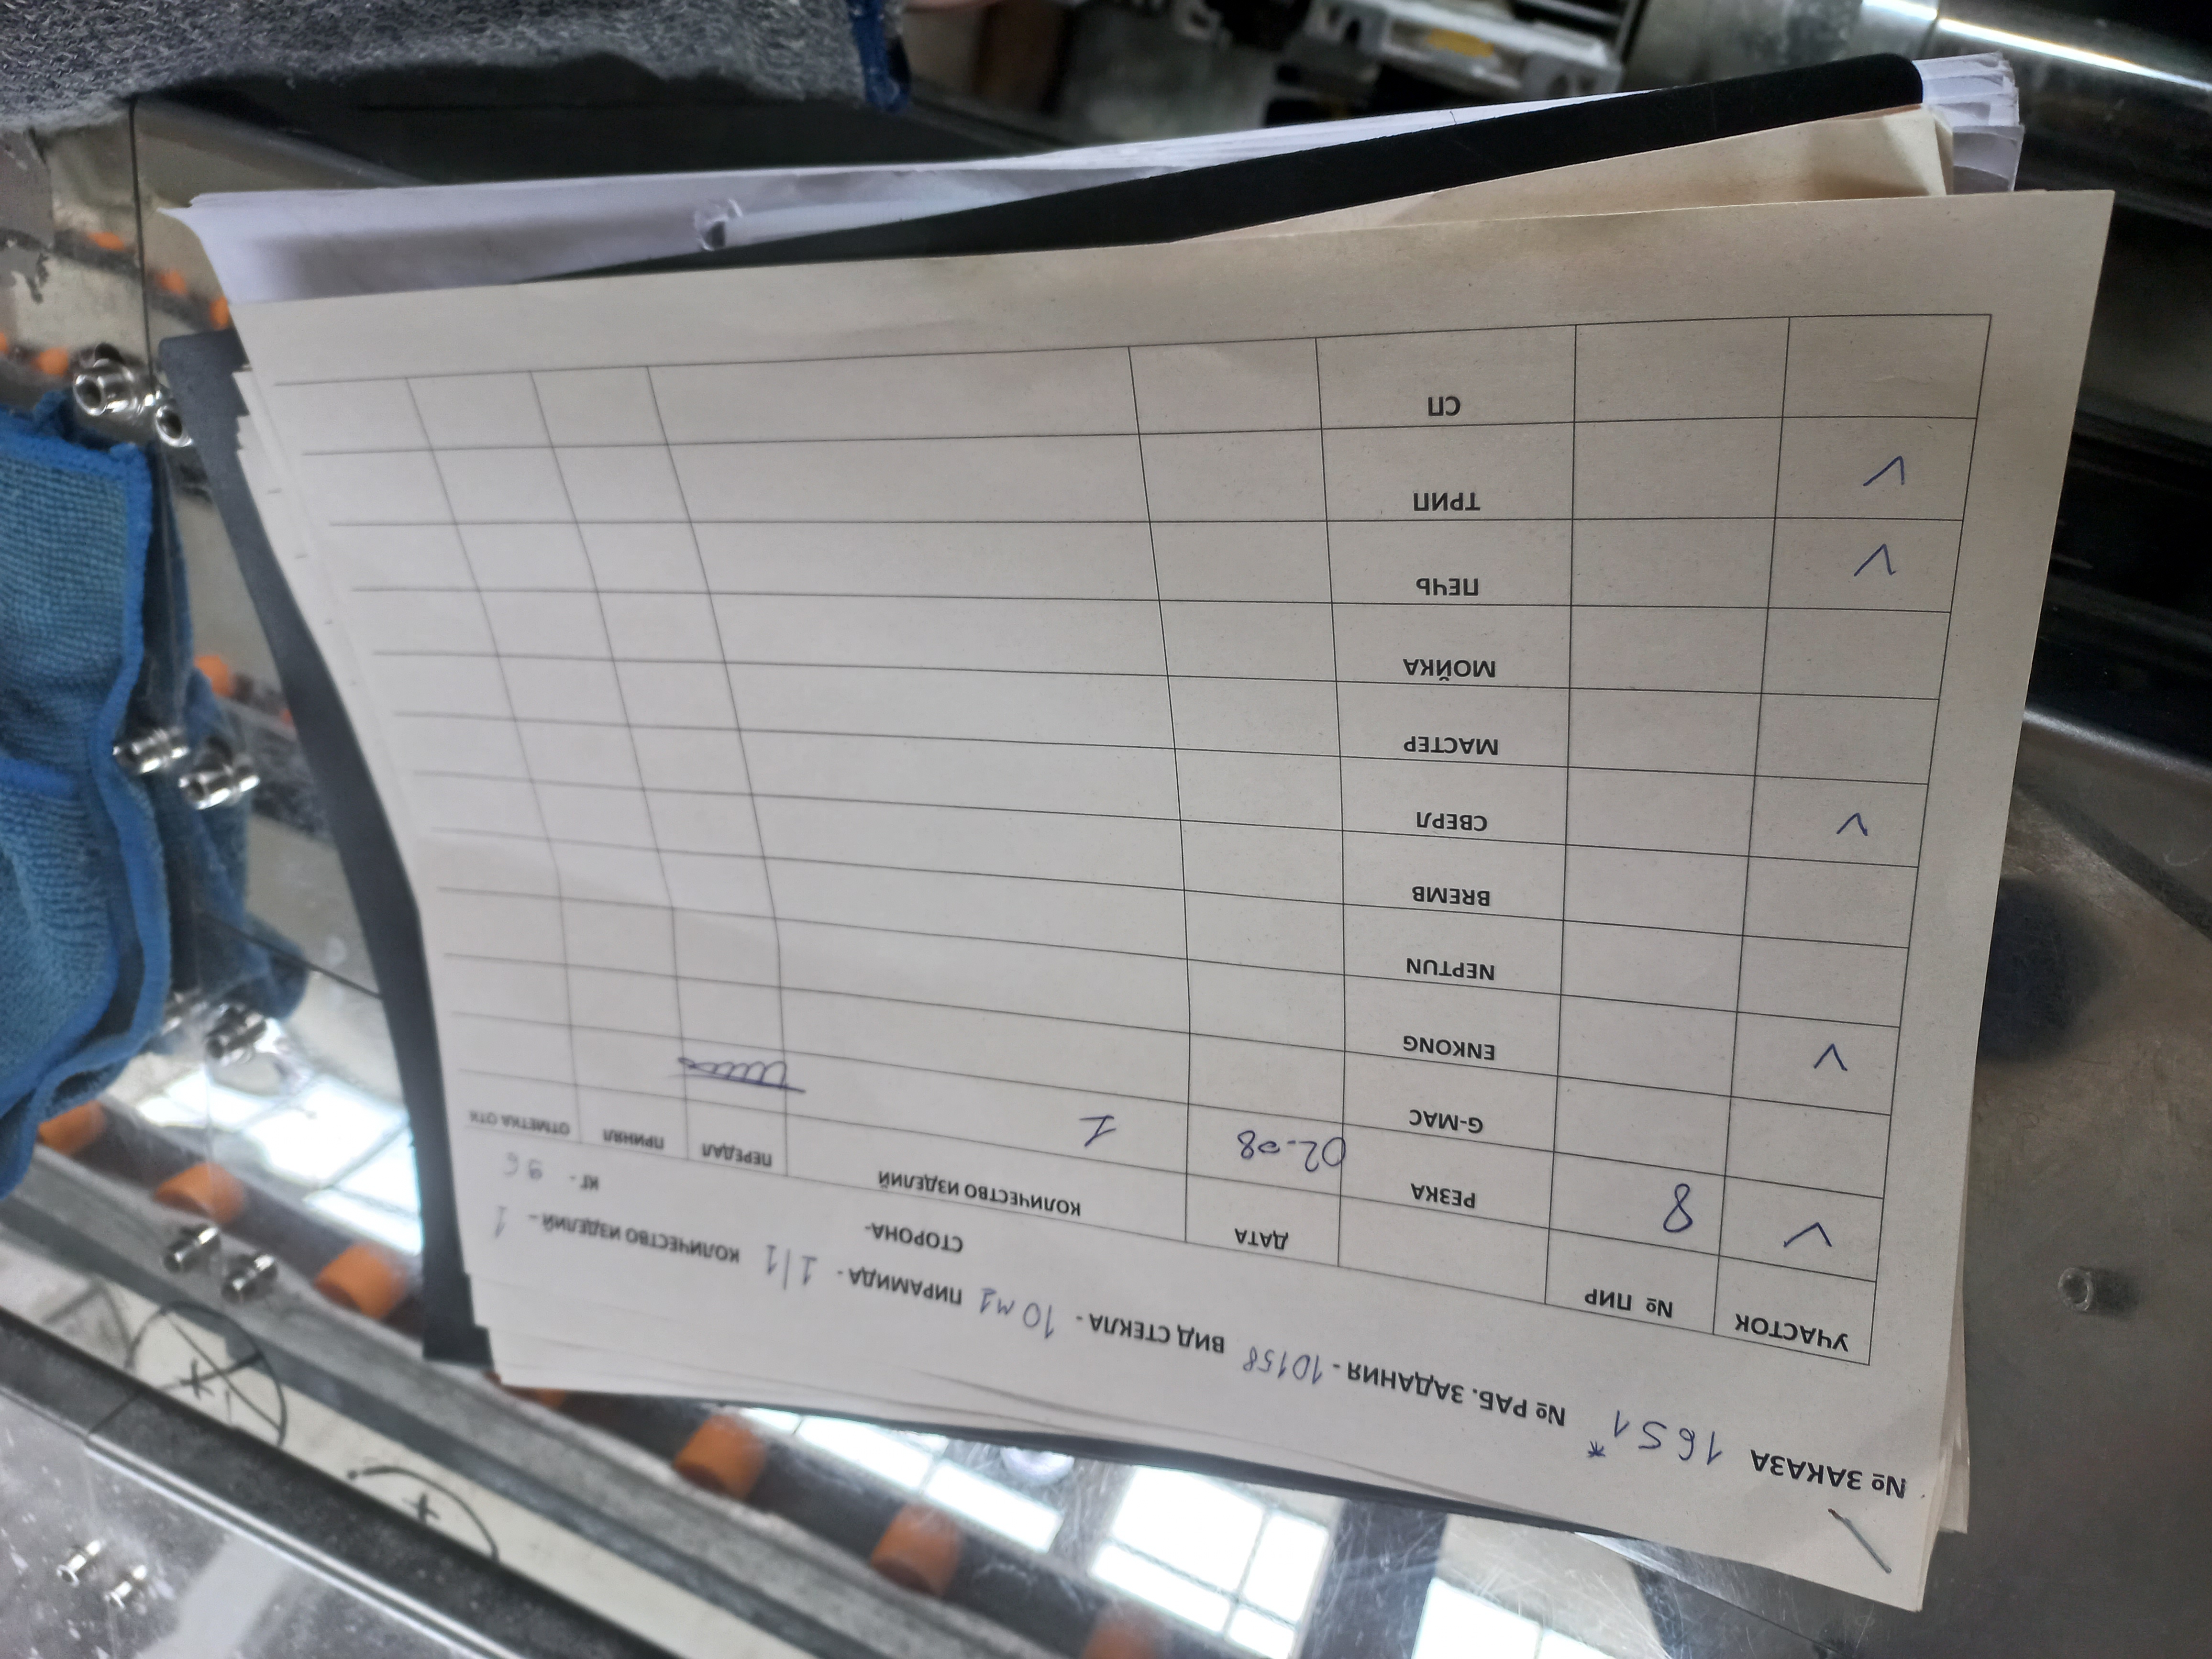 № ЗАКАЗА 1651* № РАБ. ЗАДАНИЯ - 10158 ВИД СТЕКЛА - 10м1 ПИРАМИДА - 1/1 КОЛИЧЕСТВО ИЗДЕЛИЙ - 1
СТОРОНА- КГ - 96
УЧАСТОК № ПИР ДАТА КОЛИЧЕСТВО ИЗДЕЛИЙ ПЕРЕДАЛ ПРИНЯЛ ОТМЕТКА ОТК
V 8 РЕЗКА 02.08 1
G-MAC
V ENKONG
NEPTUN
BREMB
V СВЕРЛ
МАСТЕР
МОЙКА
V ПЕЧЬ
V ТРИП
СП